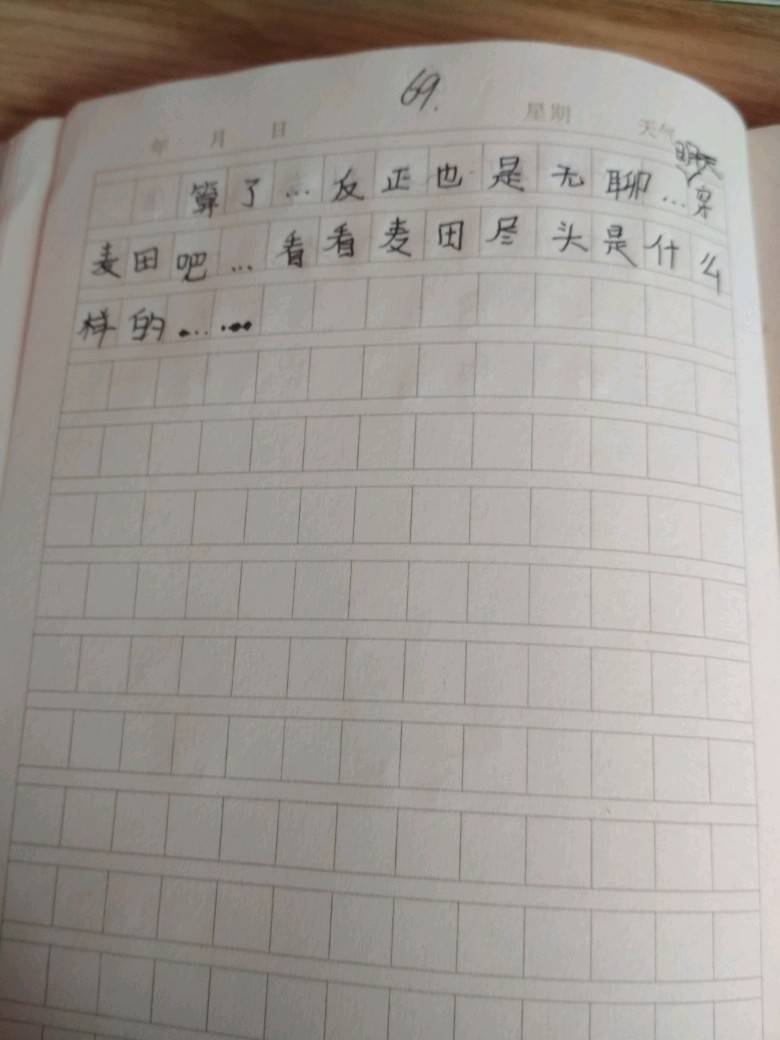 69.
年 月 日 星期 天气
明天
算了…反正也是无聊…穿
麦田吧…看看麦田尽头是什么
样的……